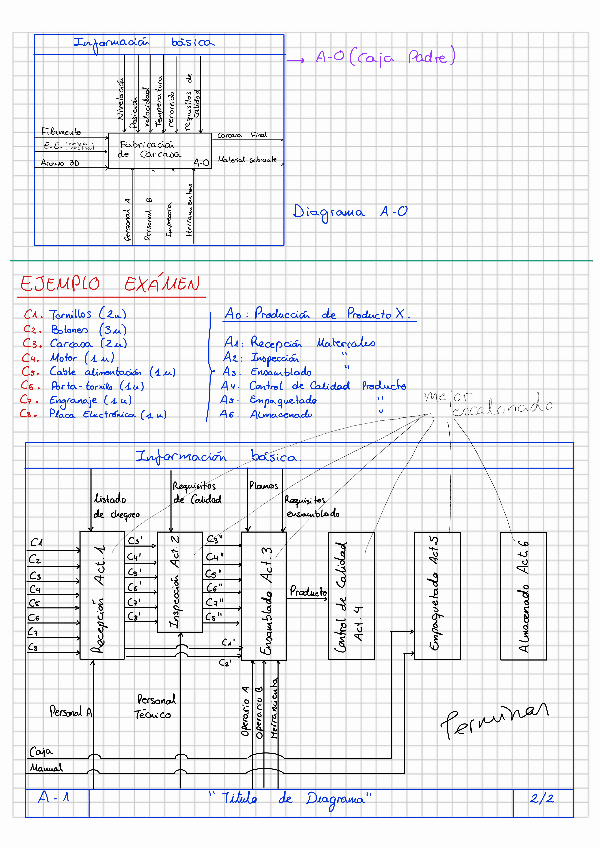 Información básica
→ A-0 (Caja Padre)
Nivelación
Posición
velocidad
Temperatura
requisitos de calidad
Filamento
Archivo 3D
Fabricación de Carcasa
A-0
Carcasa Final
Material sobrante
Personal A
Personal B
Impresora
Herramientas
Diagrama A-0
EJEMPLO EXÁMEN
C1. Tornillos (2u)
C2. Bolones (3u)
C3. Carcasa (2u)
C4. Motor (1u)
C5. Cable alimentación (1u)
C6. Porta-tornillo (1u)
C7. Engranaje (1u)
C8. Placa Electrónica (1u)
A0: Producción de Producto X.
A1: Recepción Materiales
A2: Inspección "
A3: Ensamblado "
A4: Control de Calidad Producto
A5: Empaquetado "
A6: Almacenado "
mejor
escalonado
Información básica.
Listado de chequeo
Requisitos de Calidad
Planos
Requisitos ensamblado
C1
C2
C3
C4
C5
C6
C7
C8
Recepción Act.1
C3'
C4'
C5'
C6'
C7'
C8'
Inspección Act.2
C3''
C4''
C5''
C6''
C7''
C8''
C1'
C2'
Ensamblado Act.3
Producto
Control de Calidad Act.4
Empaquetado Act.5
Almacenado Act.6
Personal A
Personal Técnico
Operario A
Operario B
Herramienta
Terminar
Caja
Manual
A-1
"Titulo de Diagrama"
2/2